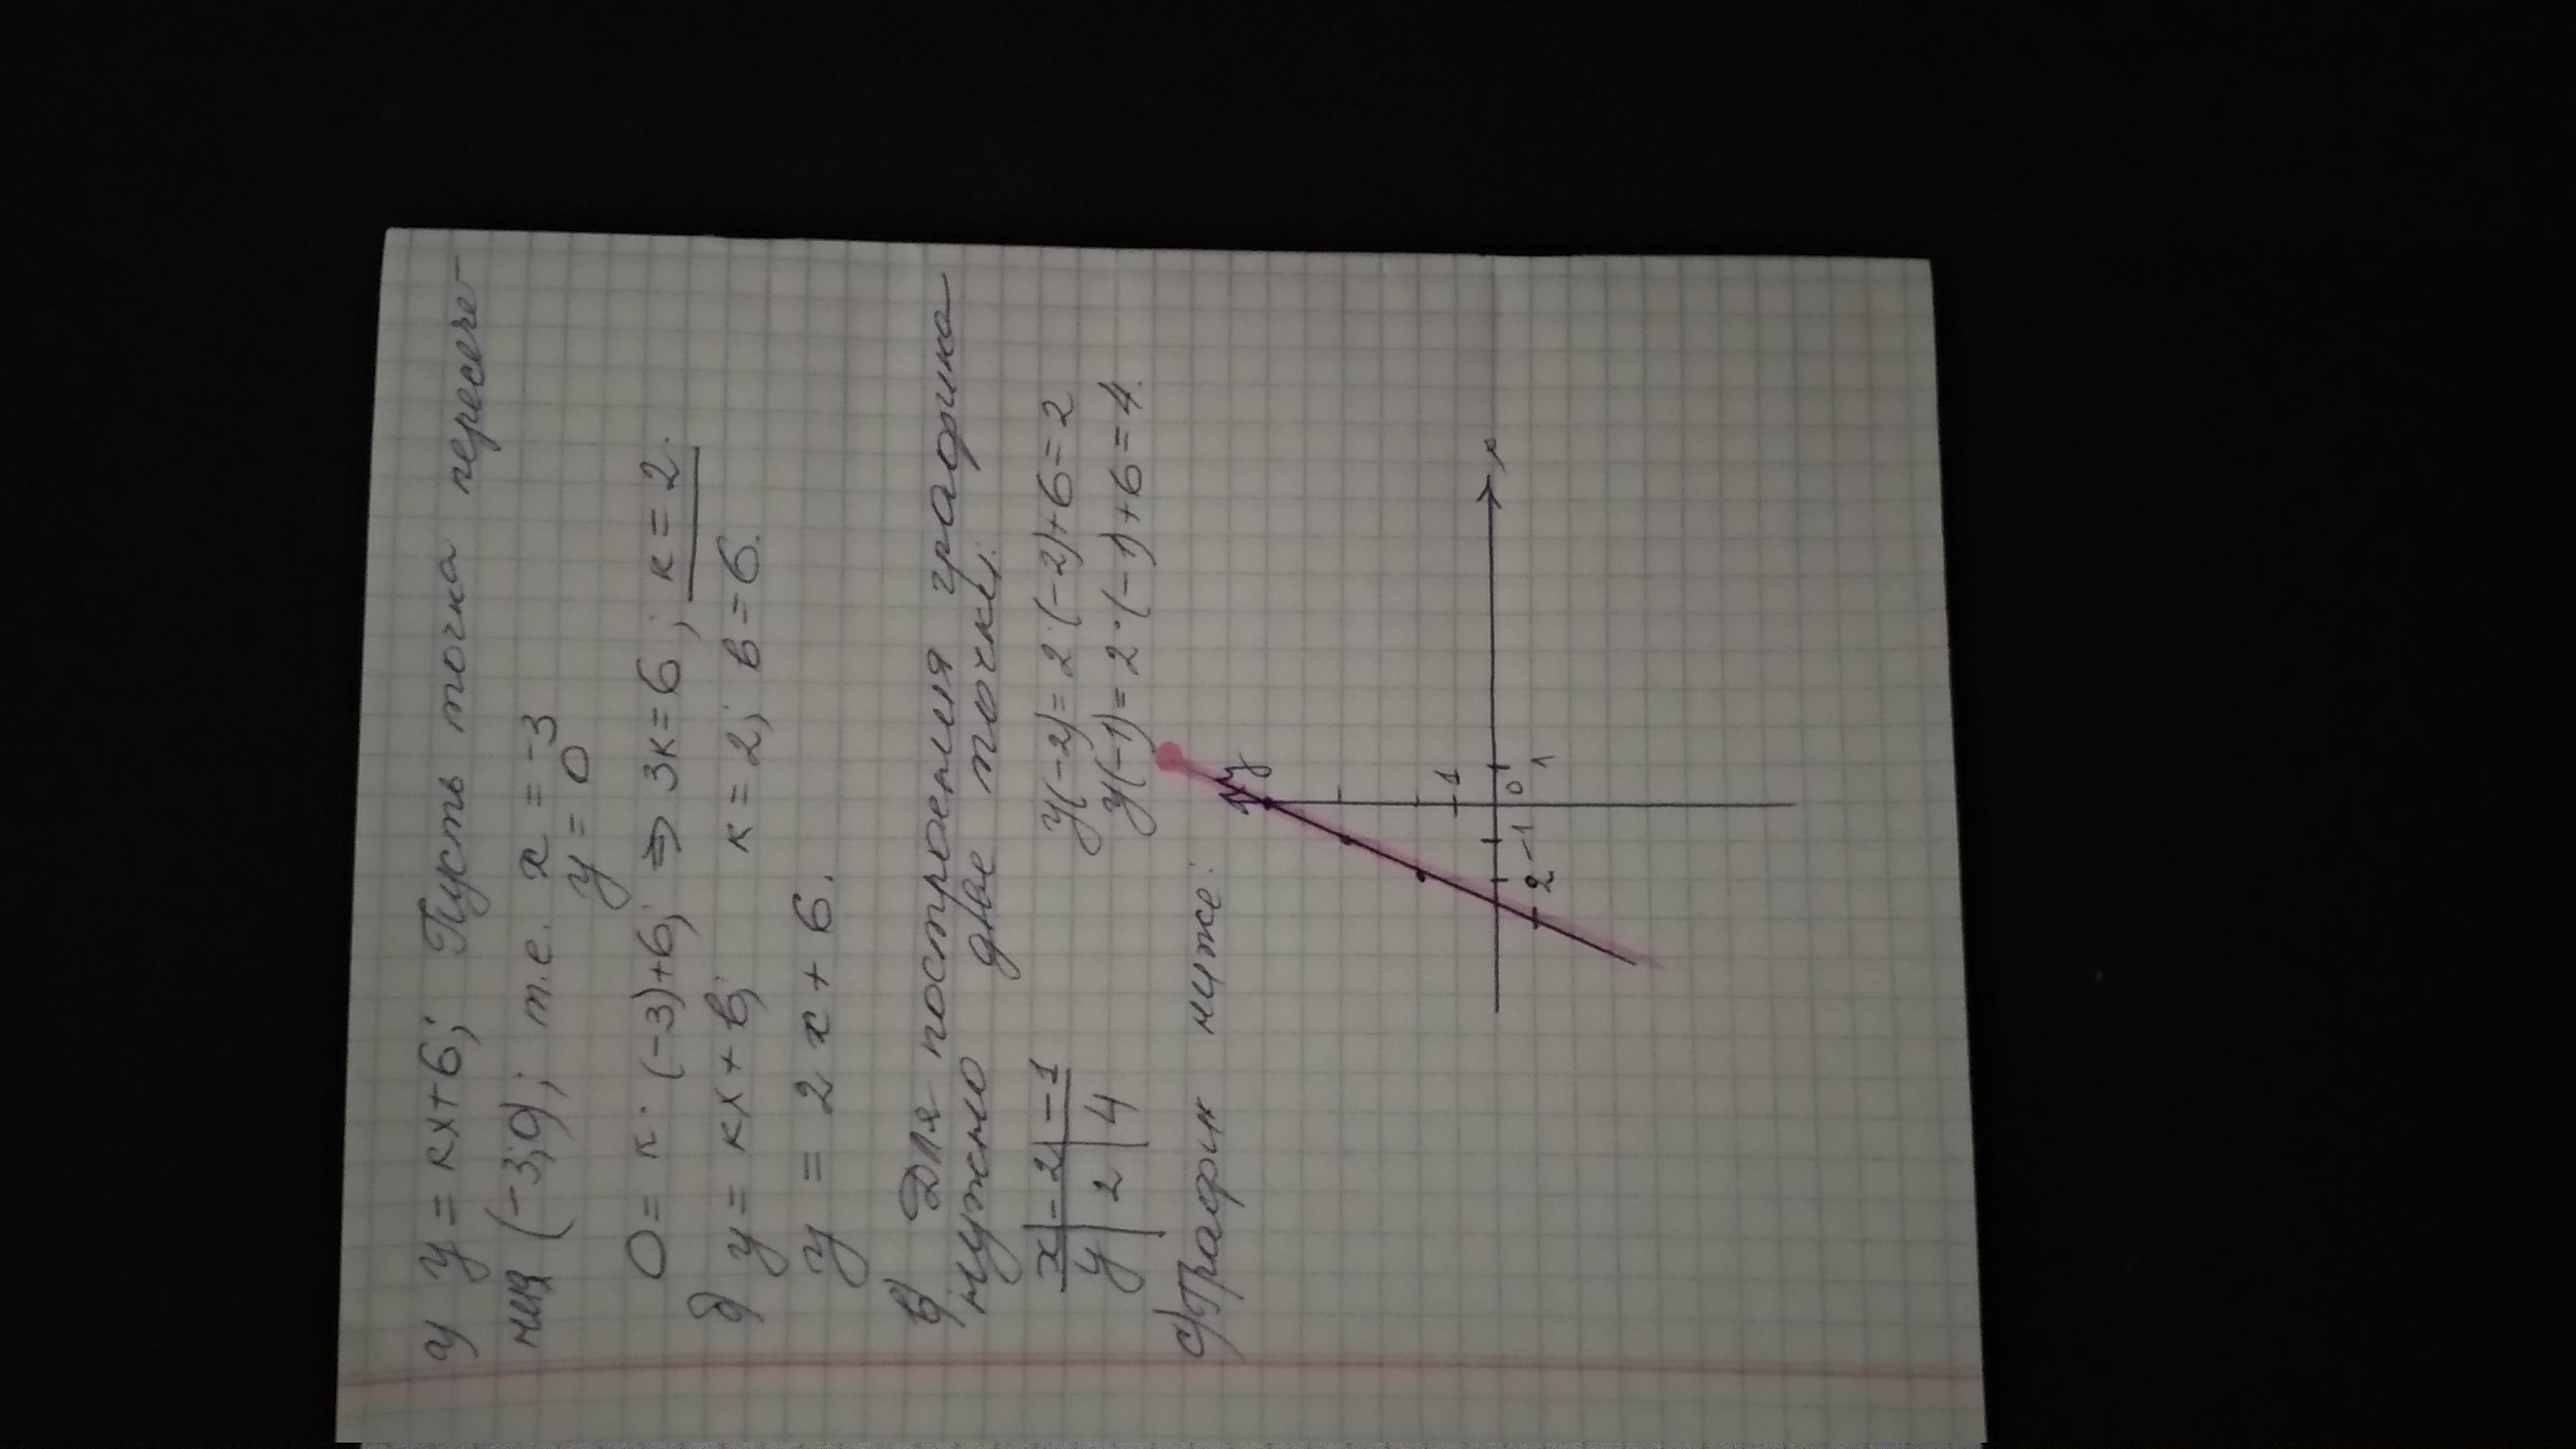 а) y = кx+6; Пусть точка пересече-
ния (-3;0); т.е. x = -3
y = 0
0 = к·(-3)+6; ⇒ 3к=6; к=2.
д) y = кx+в; к=2; в=6.
y = 2x+6.
в) Для построения графика
нужно две точки:
x | -2 | -1 y(-2)=2·(-2)+6=2
y | 2 | 4 y(-1)=2·(-1)+6=4.
с) График ниже:
y
1
2 -1 0 1 x